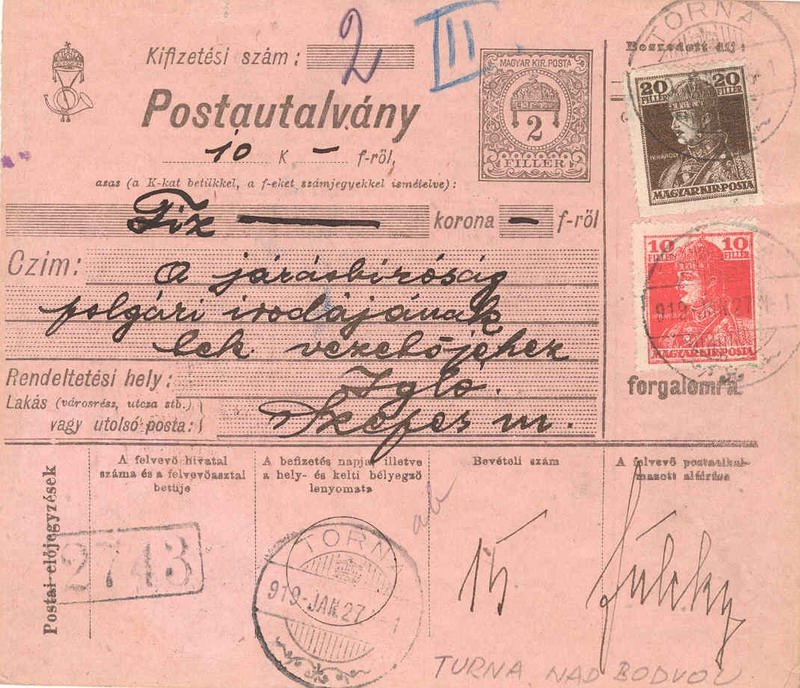 Kifizetési szám:
2
III
Postautalvány
10 K — f-ről,
azas (a K-kat betükkel, a f-eket számjegyekkel ismételve):
Tiz — korona — f-ről
MAGYAR KIR. POSTA
2
FILLÉR
Beszedett díj:
TORNA
20 20
FILLÉR FILLÉR
MAGYAR KIR. POSTA
10 10
FILLÉR FILLÉR
919 JAN 27
MAGYAR KIR. POSTA
forgalomra
Czim: A járásbiróság
polgári irodájának
lek vezetőjéhez
Rendeltetési hely: Igló.
Lakás (városrész, utcza stb.)
vagy utolsó posta: Szepes m.
Postai előjegyzések
A felvevő hivatal
száma és a felvevőasztal
betüje
2743
A befizetés napja, illetve
a hely- és kelti bélyegző
lenyomata
TORNA
919 JAN 27
Bevételi szám
15
A felvevő postaalkal-
mazott aláirása
TURNA NAD BODVOU